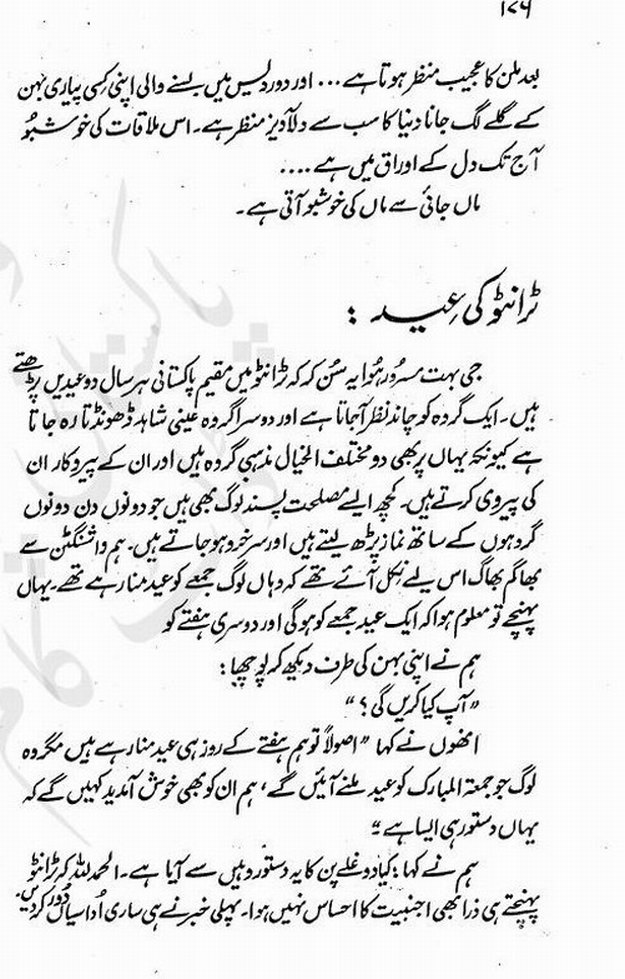 ۱۷۶
بعد ملن کا عجیب منظر ہوتا ہے ... اور دور دیس میں بسنے والی اپنی کسی پیاری بہن
کے گلے لگ جانا دنیا کا سب سے دلآویز منظر ہے۔ اس ملاقات کی خوشبو
آج تک دل کے اوراق میں ہے ....
ماں جائی سے ماں کی خوشبو آتی ہے۔
ٹرانٹو کی عید :
جی بہت مسرُور ہُوا یہ سُن کر کہ ٹرانٹو میں مقیم پاکستانی ہر سال دو عیدیں پڑھتے
ہیں۔ ایک گروہ کو چاند نظر آجاتا ہے اور دوسرا گروہ عینی شاہد ڈھونڈتا رہ جاتا
ہے کیونکہ یہاں پر بھی دو مختلف الخیال مذہبی گروہ ہیں اور ان کے پیروکار ان
کی پیروی کرتے ہیں۔ کچھ ایسے مصلحت پسند لوگ بھی ہیں جو دونوں دن دونوں
گروہوں کے ساتھ نماز پڑھ لیتے ہیں اور سرخرو ہو جاتے ہیں۔ ہم واشنگٹن سے
بھاگم بھاگ اس لیے نکل آئے تھے کہ وہاں لوگ جمعے کو عید منا رہے تھے۔ یہاں
پہنچے تو معلوم ہوا کہ ایک عید جمعے کو ہو گی اور دوسری ہفتے کو
ہم نے اپنی بہن کی طرف دیکھ کر پوچھا :
"آپ کیا کریں گی ؟"
انھوں نے کہا "اصولاً تو ہم ہفتے کے روز ہی عید منا رہے ہیں مگر وہ
لوگ جو جمعۃ المبارک کو عید ملنے آئیں گے، ہم ان کو بھی خوش آمدید کہیں گے کہ
یہاں دستور ہی ایسا ہے۔"
ہم نے کہا : کیا دوغلے پن کا یہ دستور وہیں سے آیا ہے۔ الحمدللہ کہ ٹرانٹو
پہنچتے ہی ذرا بھی اجنبیت کا احساس نہیں ہوا۔ پہلی خبر نے ہی ساری اُداسیاں دُور کر دیں۔